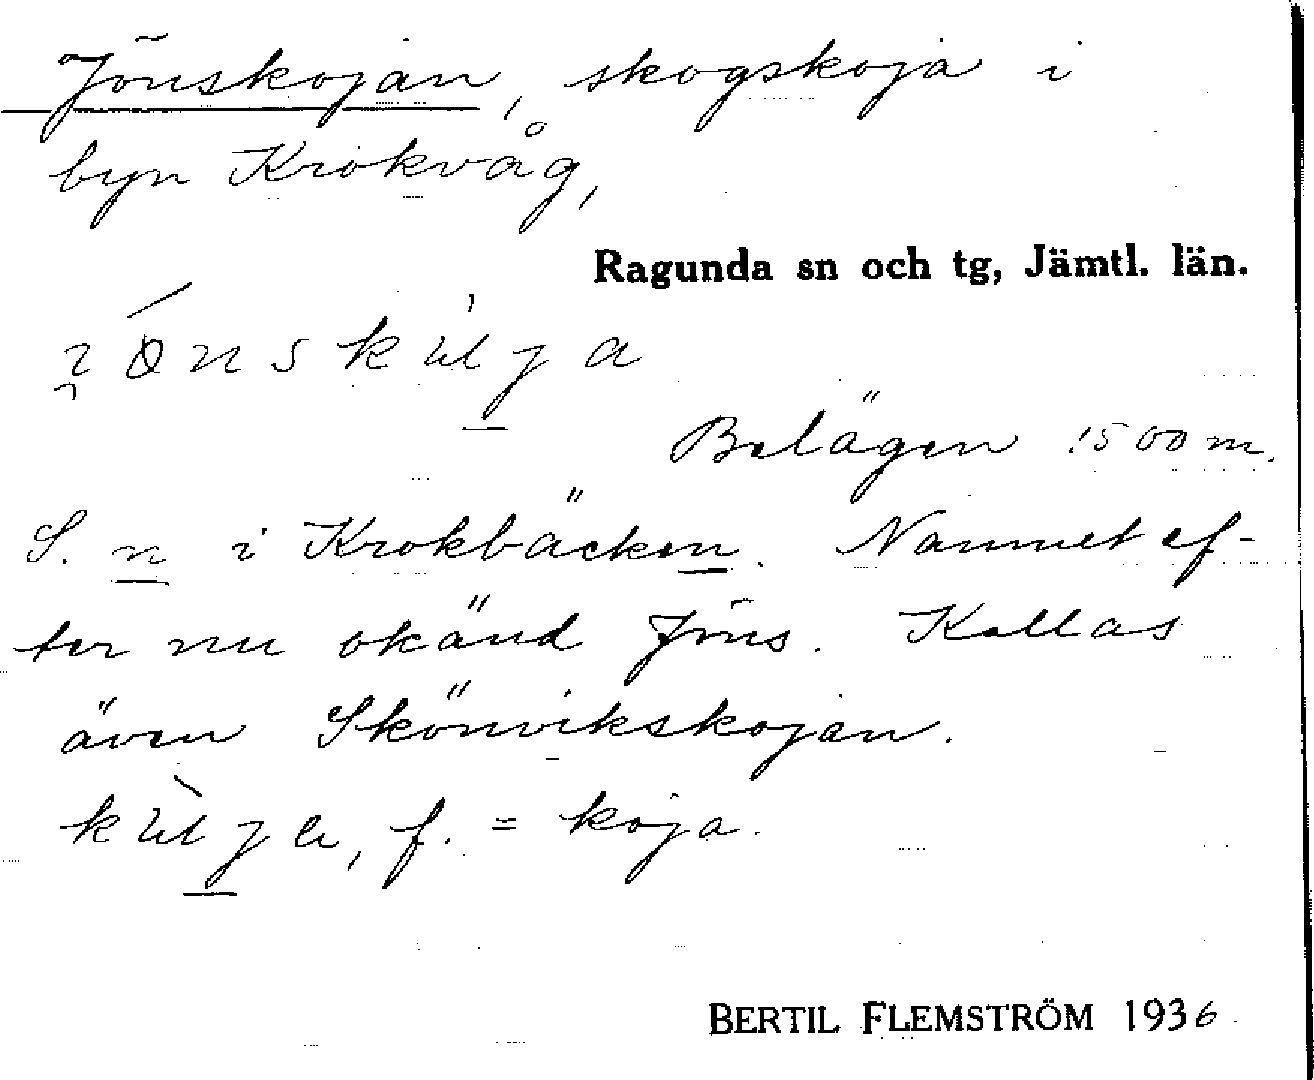 Jönskojan, skogskoja i
byn Krokvåg,
Ragunda sn och tg, Jämtl. län.
Belägen 1500 m.
S. n i Krokbäcken. Namnet ef-
ter nu okänd Jöns. Kallas
även Skönvikskojan.
f. = koja.
BERTIL FLEMSTRÖM 1936